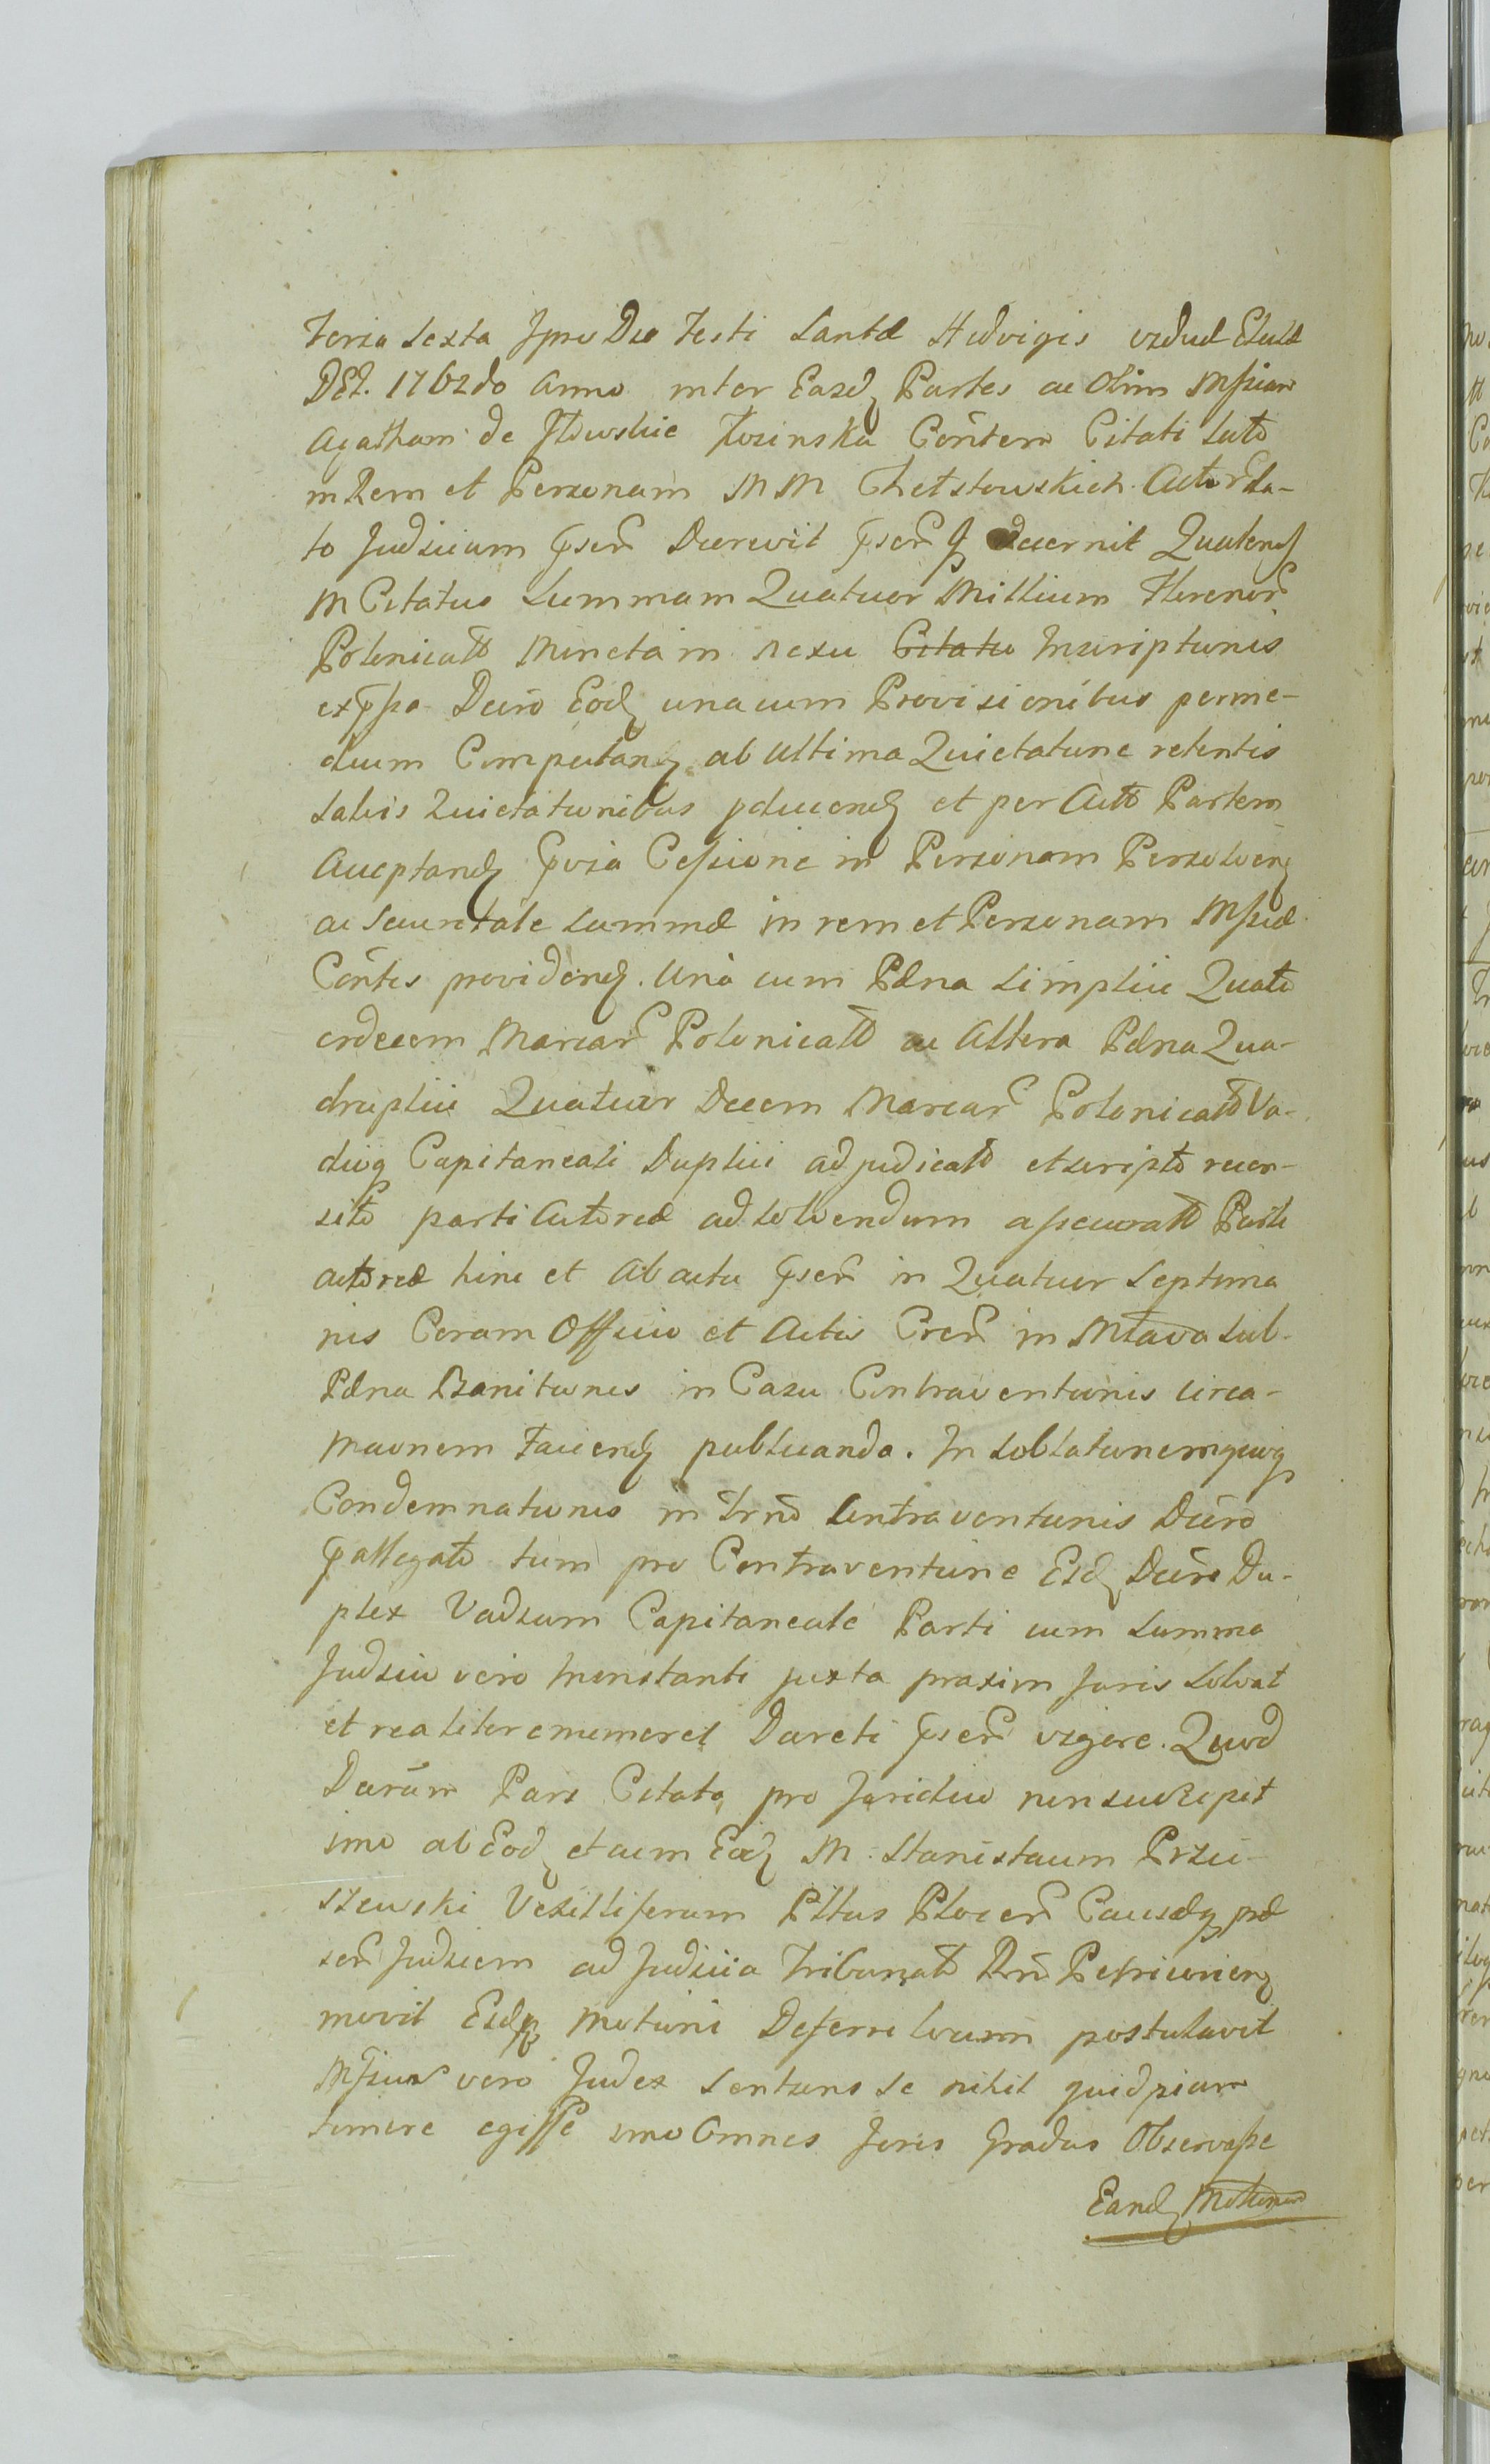 Feria Sexta Ipso Die Festi Sanctæ Hedvigis viduæ Electæ
DEl. 1762do Anno inter Easdq Partes ac Olim Mfficam
Agatham de Iłowskie Kosinska Contem Citati Lato
in Rem et Personam MM Chełstowskich Actor La-
to Judicium pser Decrevit pserq decernit Quatenus
M Citatus Summam Quatuor Millium Florenor
Polonicall Moneta in nexu Citatu Inscriptionis
expssa Decro Eodq unacum Provisionibus per me-
dium Computandq ab Ultima Quietatione retentis
salvis Quietationibus pducendq et per Actt Partem
Acceptandq pvia Cessione in Personam Persolvenq
ac Securitate Summæ in rem et Personam Mfficæ
Contis providendq. Una cum Pæna Simplici Quatu
ordecem Marcar Polonicall ac Altera Pæna Qua-
druplici Quatuor Decem Marcar Polonicall Va-
diiq Capitaneali Duplici adjudicatt et scripto recon-
sito parti Actoreæ ad solvendum assecuratt Parti
actoreæ hinc et Ab actu pser in Quatuor Septima
nis Coram Officio et Actis Cren in Mława sub
Pæna Banitionis in Casu Contraventionis circa-
maonem Faciendq publicanda. In Sublationemquq
Condemnationis in trno Contraventionis Decro
pallegato tum pro Contraventione Esdq Decro Du-
plex Vadium Capitaneale Parti cum Summa
Judicio vero Ininstanti juxta praxim Juris Solvat
et realiter enumeret Decreti pser vigore. Quod
Decrum Pars Citata pro Juridico non suscepit
imo ab Eodq et cum Eodq M. Stanislaum Przeci-
szewski Vexilliferum Pltus Plocen Causæq præ
sen Judicem ad Judicia Tribunal Rni Petricovienq
movit Eidq Motioni Deferre locum postulavit
Mfficus vero Judex Sentiens se nihil quidpiam
temere egisse imo Omnes Juris Gradus Observasse
Eandq Motionem